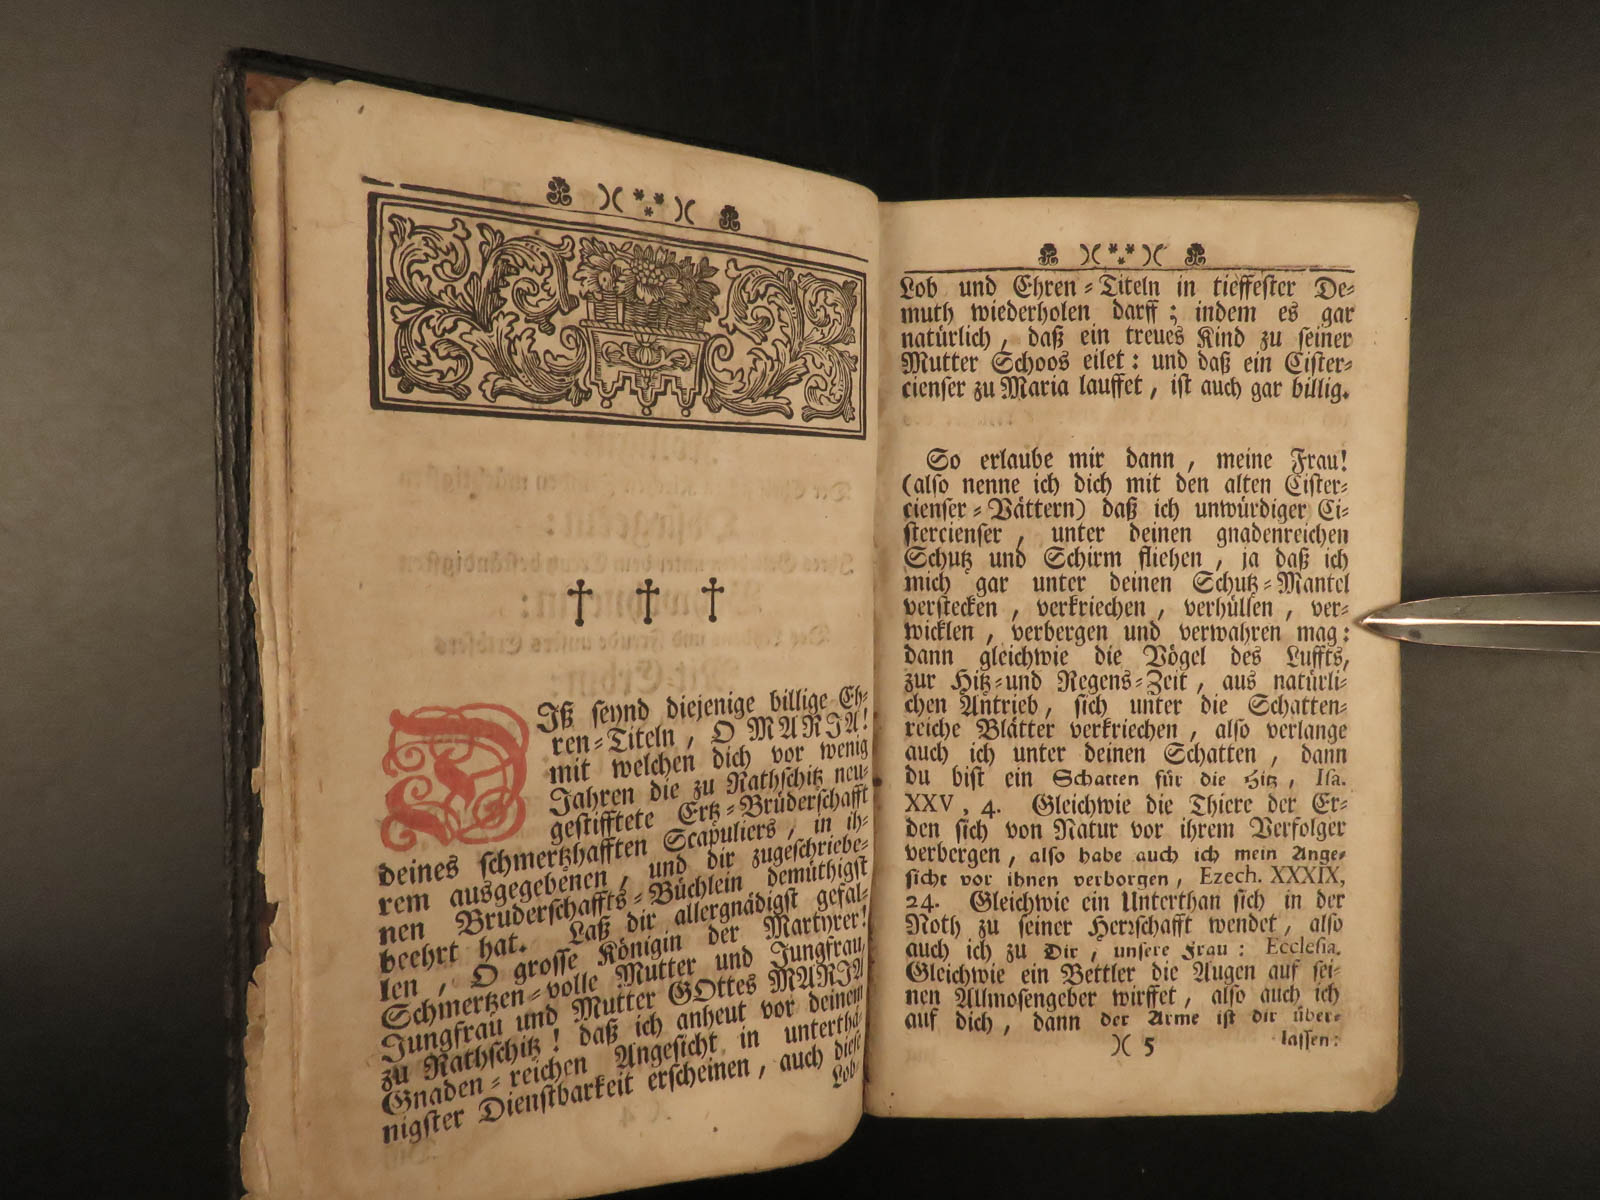 DIß seynd diejenige billige Eh-
ren-Titeln, O MARIA!
mit welchen dich vor wenig
Jahren die zu Rathschitz neu-
gestifftete Ertz-Brüderschafft
deines schmertzhafften Scapuliers, in ih-
rem ausgegebenen, und dir zugeschriebe-
nen Bruderschaffts-Büchlein demüthigst
beehrt hat. Laß dir allergnädigst gefal-
len, O grosse Königin der Martyrer!
Schmertzen-volle Mutter und Jungfrau,
Jungfrau und Mutter GOttes MARIA
zu Rathschitz! daß ich anheut vor deinem
Gnaden-reichen Angesicht in unterthä-
nigster Dienstbarkeit erscheinen, auch diese
Lob
Lob und Ehren-Titeln in tieffester De-
muth wiederholen darff; indem es gar
natürlich, daß ein treues Kind zu seiner
Mutter Schoos eilet: und daß ein Cister-
cienser zu Maria lauffet, ist auch gar billig.
So erlaube mir dann, meine Frau!
(also nenne ich dich mit den alten Cister-
cienser-Vättern) daß ich unwürdiger Ci-
stercienser, unter deinen gnadenreichen
Schutz und Schirm fliehen, ja daß ich
mich gar unter deinen Schutz-Mantel
verstecken, verkriechen, verhüllen, ver-
wicklen, verbergen und verwahren mag:
dann gleichwie die Vögel des Luffts,
zur Hitz-und Regens-Zeit, aus natürli-
chen Antrieb, sich unter die Schatten-
reiche Blätter verkriechen, also verlange
auch ich unter deinen Schatten, dann
du bist ein Schatten für die Hitz, Isa.
XXV, 4. Gleichwie die Thiere der Er-
den sich von Natur vor ihrem Verfolger
verbergen, also habe auch ich mein Ange-
sicht vor ihnen verborgen, Ezech. XXXIX,
24. Gleichwie ein Unterthan sich in der
Noth zu seiner Herrschafft wendet, also
auch ich zu Dir, unsere Frau: Ecclesia.
Gleichwie ein Bettler die Augen auf sei-
nen Allmosengeber wirffet, also auch ich
auf dich, dann der Arme ist dir über-
)( 5 lassen: